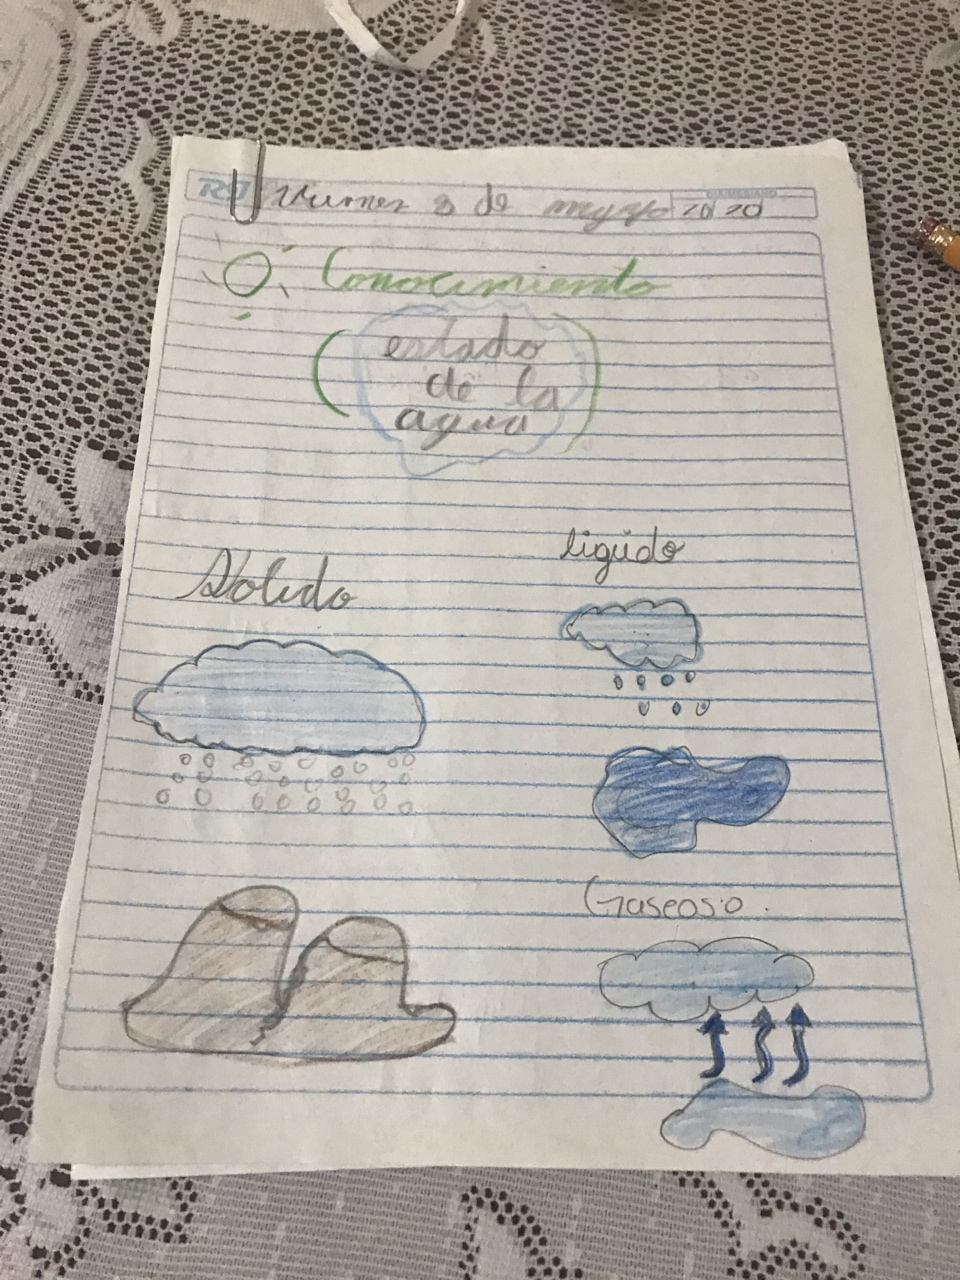 Viernes 8 de mayo 20 20
Conocimiento
estado
de la
agua
Solido
liguido
Gaseoso.